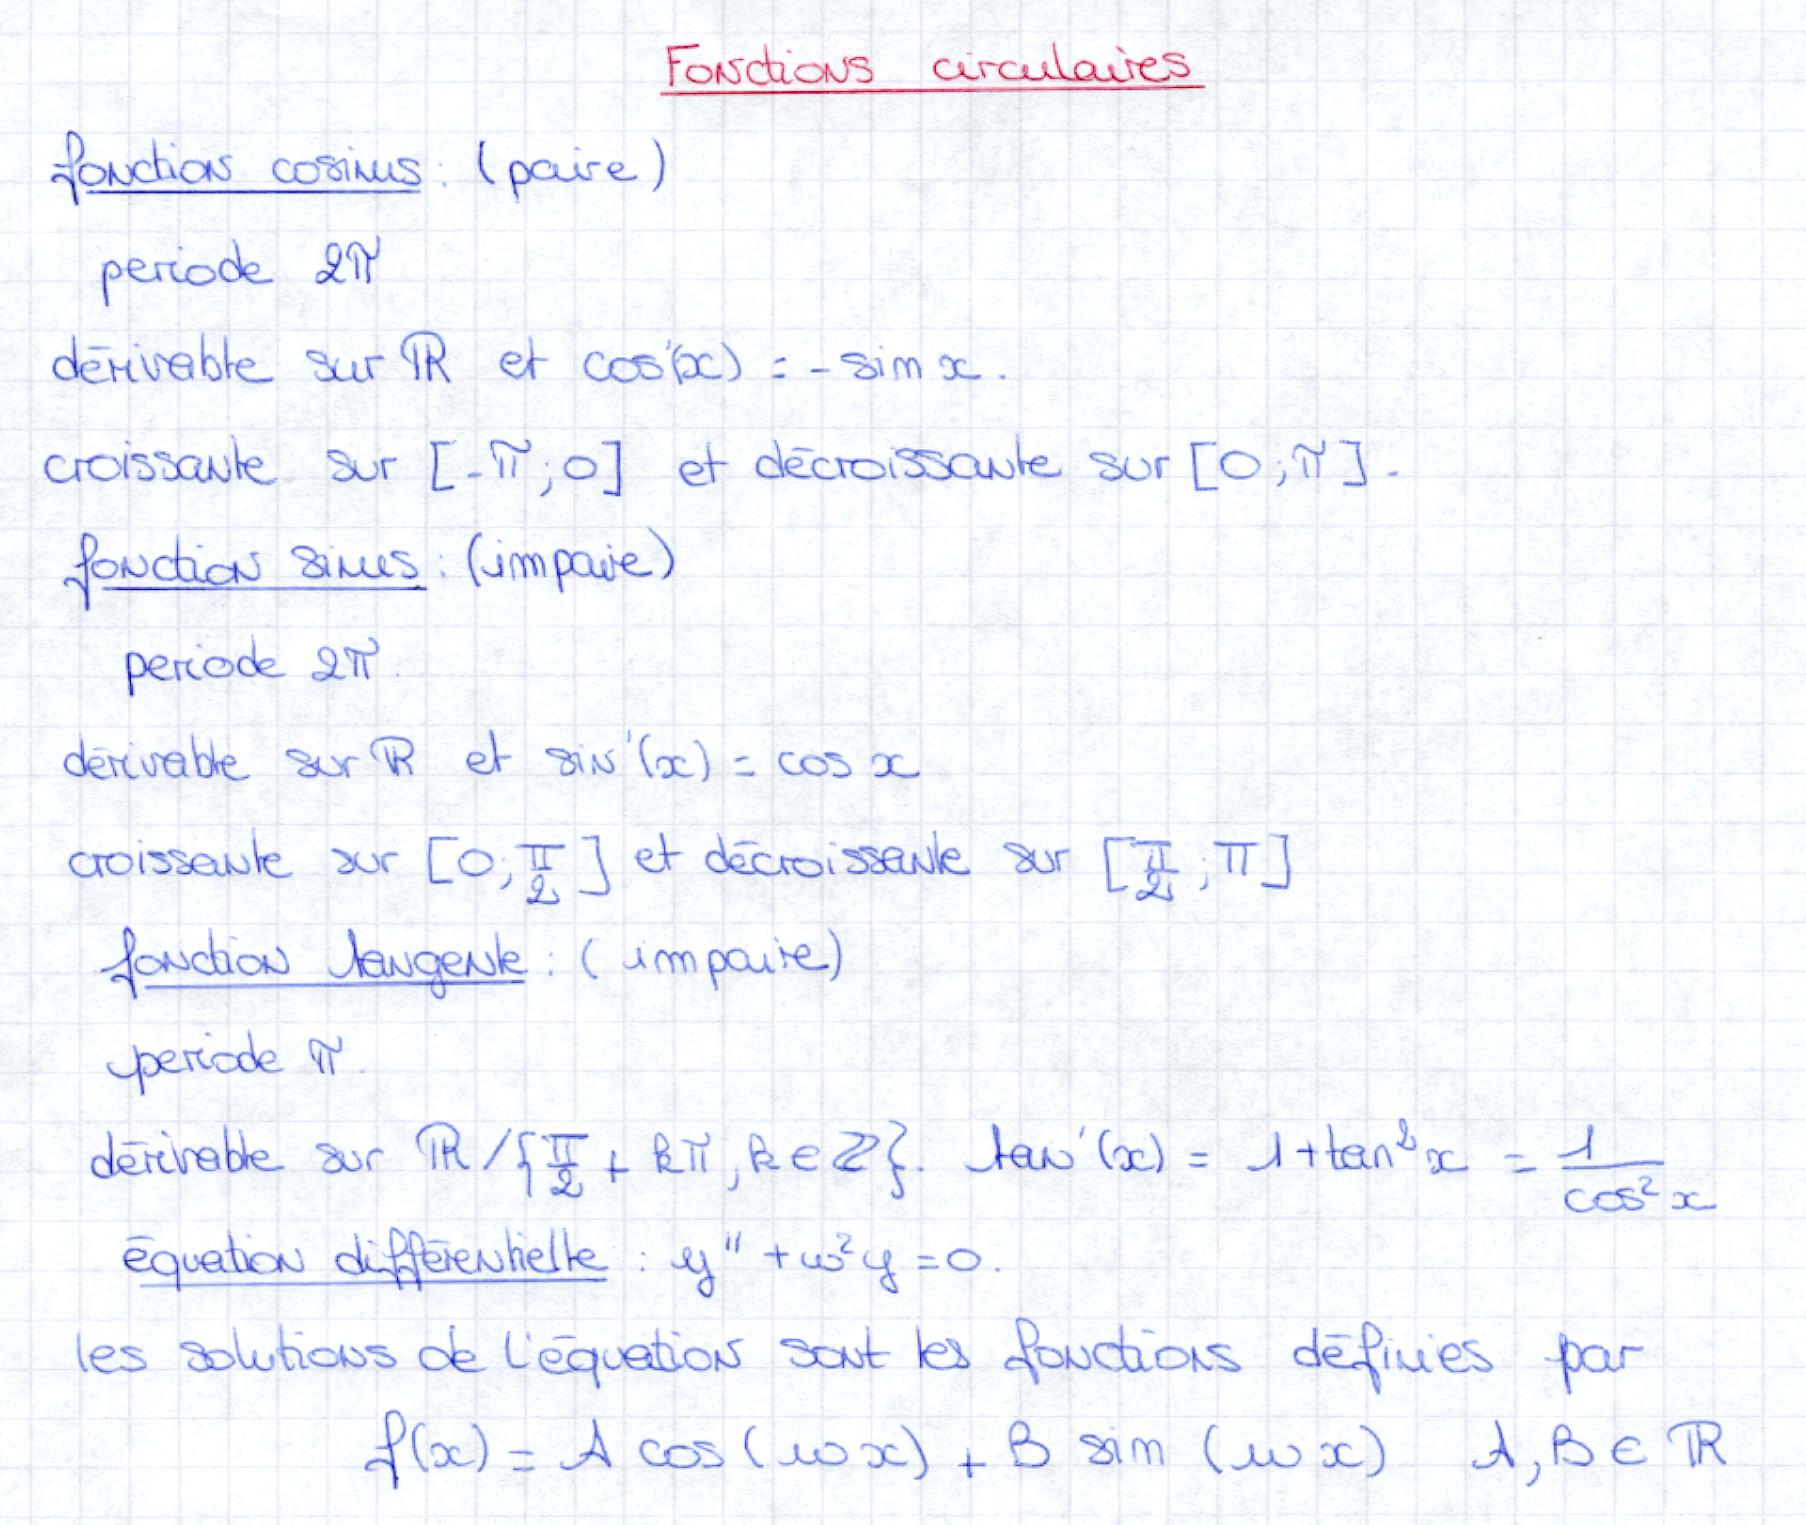 Fonctions circulaires
fonction cosinus : (paire)
periode 2π
dérivable sur ℝ et cos'(x) = - sin x.
croissante sur [-π ; 0] et décroissante sur [0 ; π].
fonction sinus : (impaire)
periode 2π.
dérivable sur ℝ et sin'(x) = cos x
croissante sur [0 ; π/2] et décroissante sur [π/2 ; π]
fonction tangente : (impaire)
periode π.
dérivable sur ℝ/{π/2 + kπ, k ∈ ℤ}. tan'(x) = 1 + tan² x = 1/cos² x
équation différentielle : y'' + ω²y = 0.
les solutions de l'équation sont les fonctions définies par
f(x) = A cos (ωx) + B sin (ωx) A, B ∈ ℝ